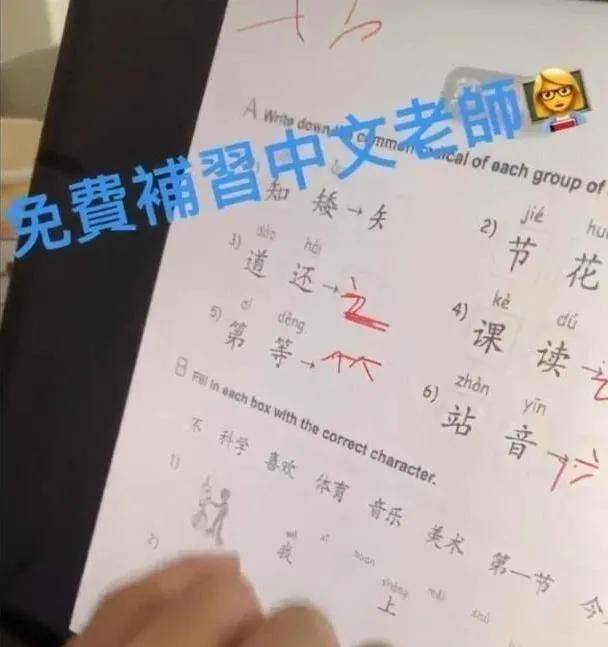 免費補習中文老師
A Write down common radical of each group of
知 矮→矢
2) jié
节 花
3) dào hái
道 还→辶
4) kè dú
课 读→讠
5) dì děng
第 等→⺮
6) zhàn yīn
站 音→立
B Fill in each box with the correct character.
不 科学 喜欢 体育 音乐 美术 第一节 今
1)
2)
我
上